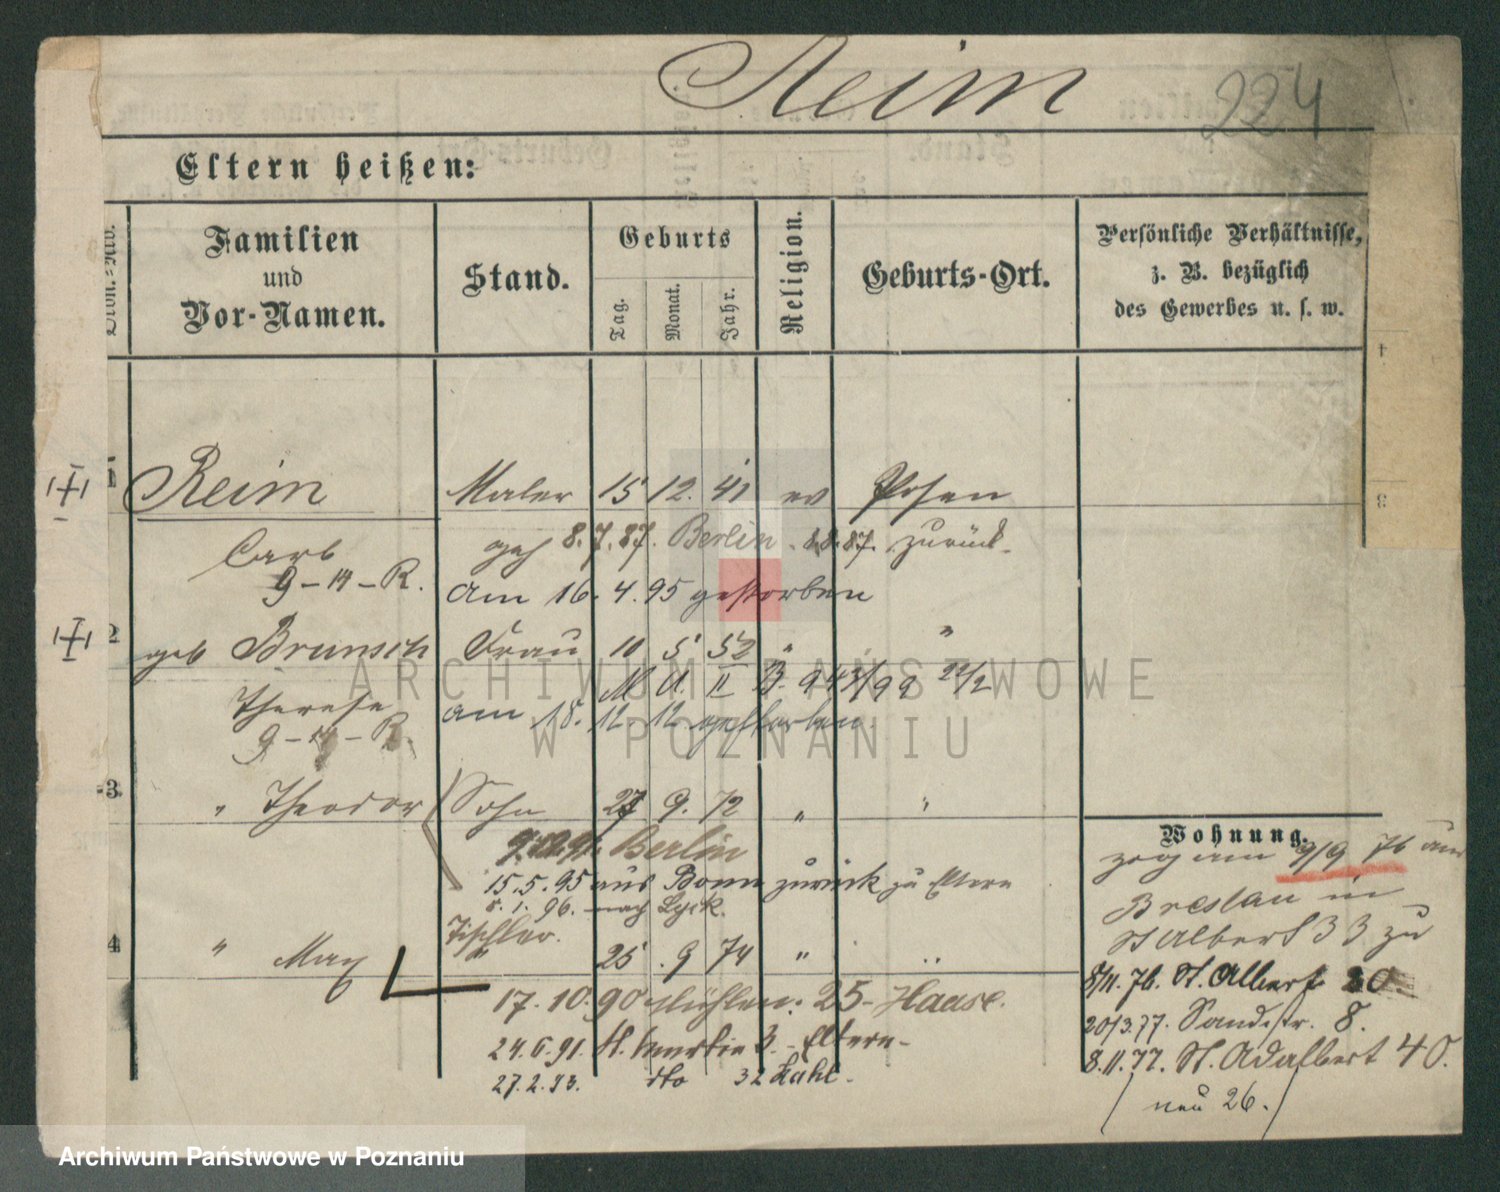 Reim
224
Eltern heißen:
Familien
und
Vor-Namen.
Stand.
Geburts
Tag.
Monat.
Jahr.
Religion.
Geburts-Ort.
Persönliche Verhältnisse,
z. B. bezüglich
des Gewerbes u. s. w.
1 Reim Maler 15 12. 41 ev Posen
Carl
geh 8.7.87. Berlin. 8.87. zurück.
9-14-R.
am 16. 4. 95 gestorben
2 geb Brunsch Frau 10 5 52 " "
Therese
9-14-R.
am 18. 12. 12 gestorben.
3. " Theodor Sohn 27 9. 72 " "
Berlin
15.5.95 aus Bonn zurück zu Eltern
8. 1. 96. nach Lyck.
Tischler.
4 " Max " 25 . 9 74 " "
17. 10. 90 Mühlen. 25 - Haase.
24.6.91. St. Martin 3. - Eltern -
27.2.93. dto 32 Kahl.
Wohnung.
zog am 9/9 76 aus
Breslau in
St Albert 33 zu
8/11. 76. St. Albert 30
20/3.77. Sandstr. 8.
8.11.77. St. Adalbert 40.
/ neu 26. /
ARCHIWUM PAŃSTWOWE
W POZNANIU
Archiwum Państwowe w Poznaniu